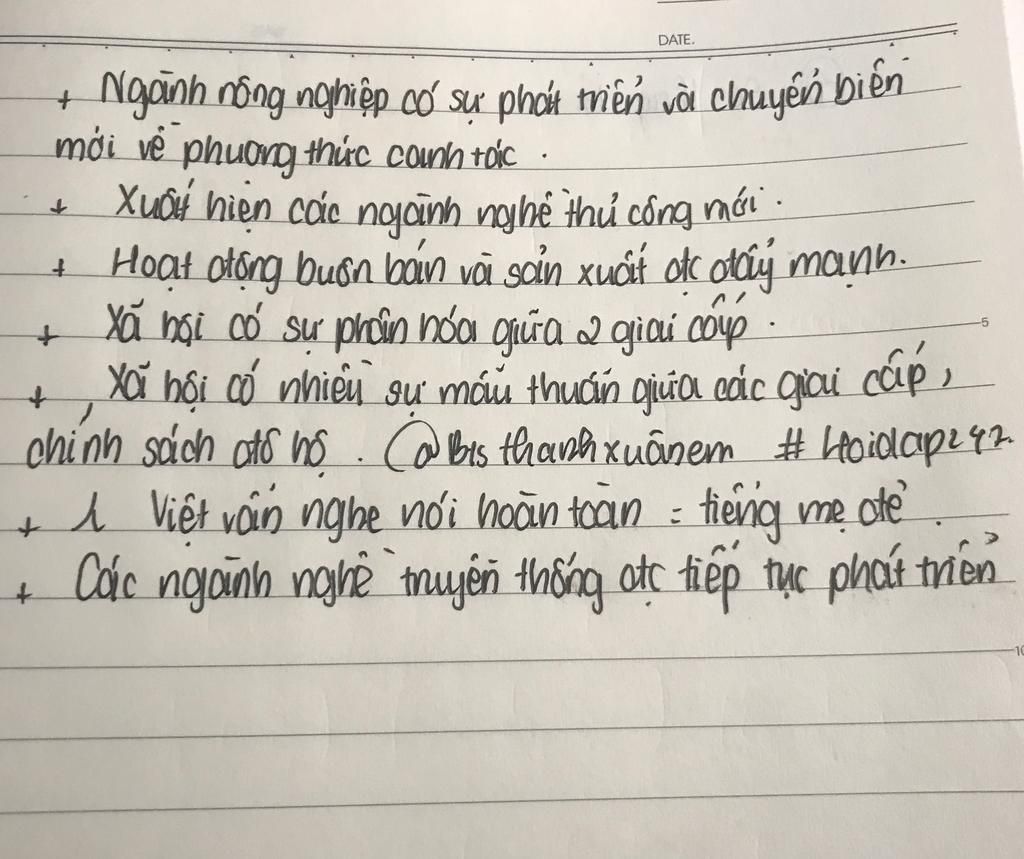 DATE.
+ Ngành nông nghiệp có sự phát triển và chuyển biến
mới về phương thức canh tác.
+ Xuất hiện các ngành nghề thủ công mới.
+ Hoạt động buôn bán và sản xuất đc đẩy mạnh.
+ Xã hội có sự phân hóa giữa 2 giai cấp.
5
+ Xã hội có nhiều sự mâu thuẫn giữa các giai cấp,
chính sách đô hộ. @Bts thanhxuânem #Hoidap247
+ Việt vẫn nghe nói hoàn toàn = tiếng mẹ đẻ.
+ Các ngành nghề truyền thống đc tiếp tục phát triển
10